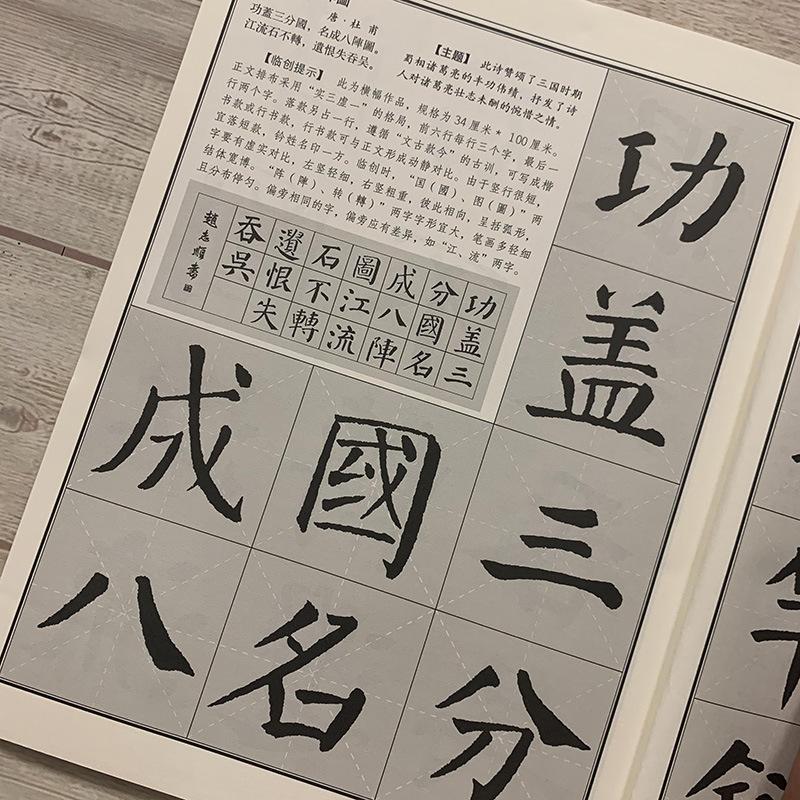 圖
唐·杜甫
功盖三分國，名成八陣圖。
江流石不轉，遺恨失吞吴。
【主题】 此诗赞颂了三国时期
蜀相诸葛亮的丰功伟绩，抒发了诗
人对诸葛亮壮志未酬的惋惜之情。
【临创提示】 此为横幅作品，规格为34厘米*100厘米。
正文排布采用“实三虚一”的格局，前六行每行三个字，最后一
行两个字。落款另占一行，遵循“文古款今”的古训，可写成楷
书款或行书款，行书款可与正文形成动静对比。由于竖行很短，
宜落短款，钤姓名印一方。临创时，“国（國）、图（圖）”两
字要有虚实对比，左竖轻细，右竖粗重，彼此相向，呈括弧形，
结体宽博。“阵（陣）、转（轉）”两字字形宜大，笔画多轻细
且分布停匀。偏旁相同的字，偏旁应有差异，如“江、流”两字。
功盖三
分國名
成八陣
圖江流
石不轉
遺恨失
吞吳
趙志書
功盖三分
國名
成八